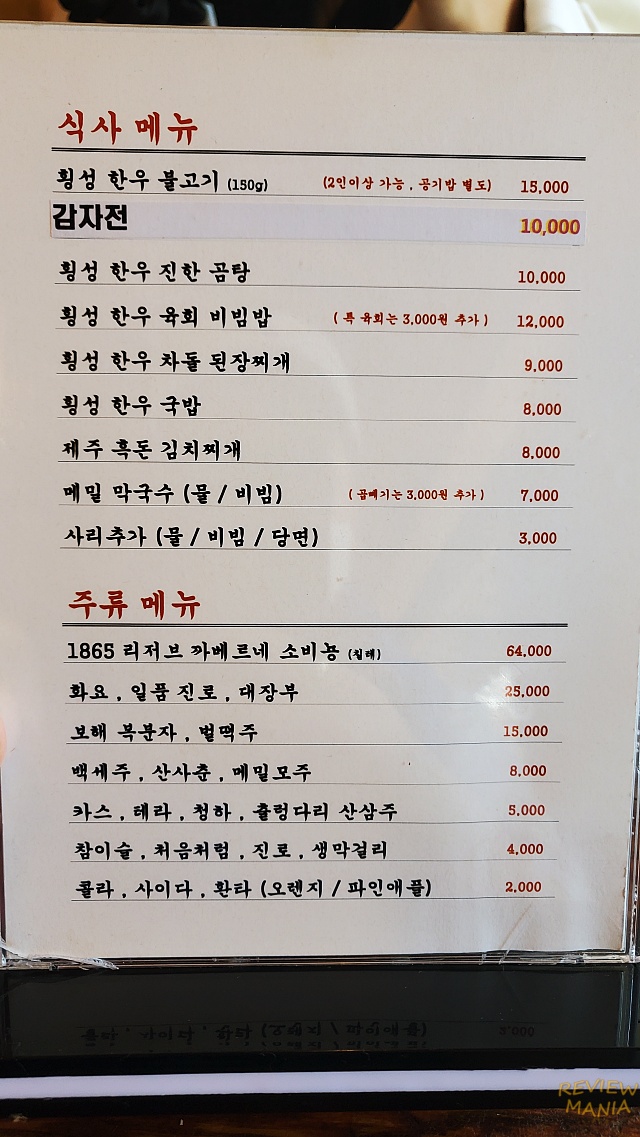 식사 메뉴
횡성 한우 불고기 (150g) (2인이상 가능 , 공기밥 별도) 15,000
감자전 10,000
횡성 한우 진한 곰탕 10,000
횡성 한우 육회 비빔밥 ( 특 육회는 3,000원 추가 ) 12,000
횡성 한우 차돌 된장찌개 9,000
횡성 한우 국밥 8,000
제주 흑돈 김치찌개 8,000
메밀 막국수 (물 / 비빔) ( 곱빼기는 3,000원 추가 ) 7,000
사리추가 (물 / 비빔 / 당면) 3,000
주류 메뉴
1865 리저브 까베르네 소비뇽 (칠레) 64,000
화요 , 일품 진로 , 대장부 25,000
보해 복분자 , 벌떡주 15,000
백세주 , 산사춘 , 메밀모주 8,000
카스 , 테라 , 청하 , 출렁다리 산삼주 5,000
참이슬 , 처음처럼 , 진로 , 생막걸리 4,000
콜라 , 사이다 , 환타 (오렌지 / 파인애플) 2,000
REVIEW
MANIA